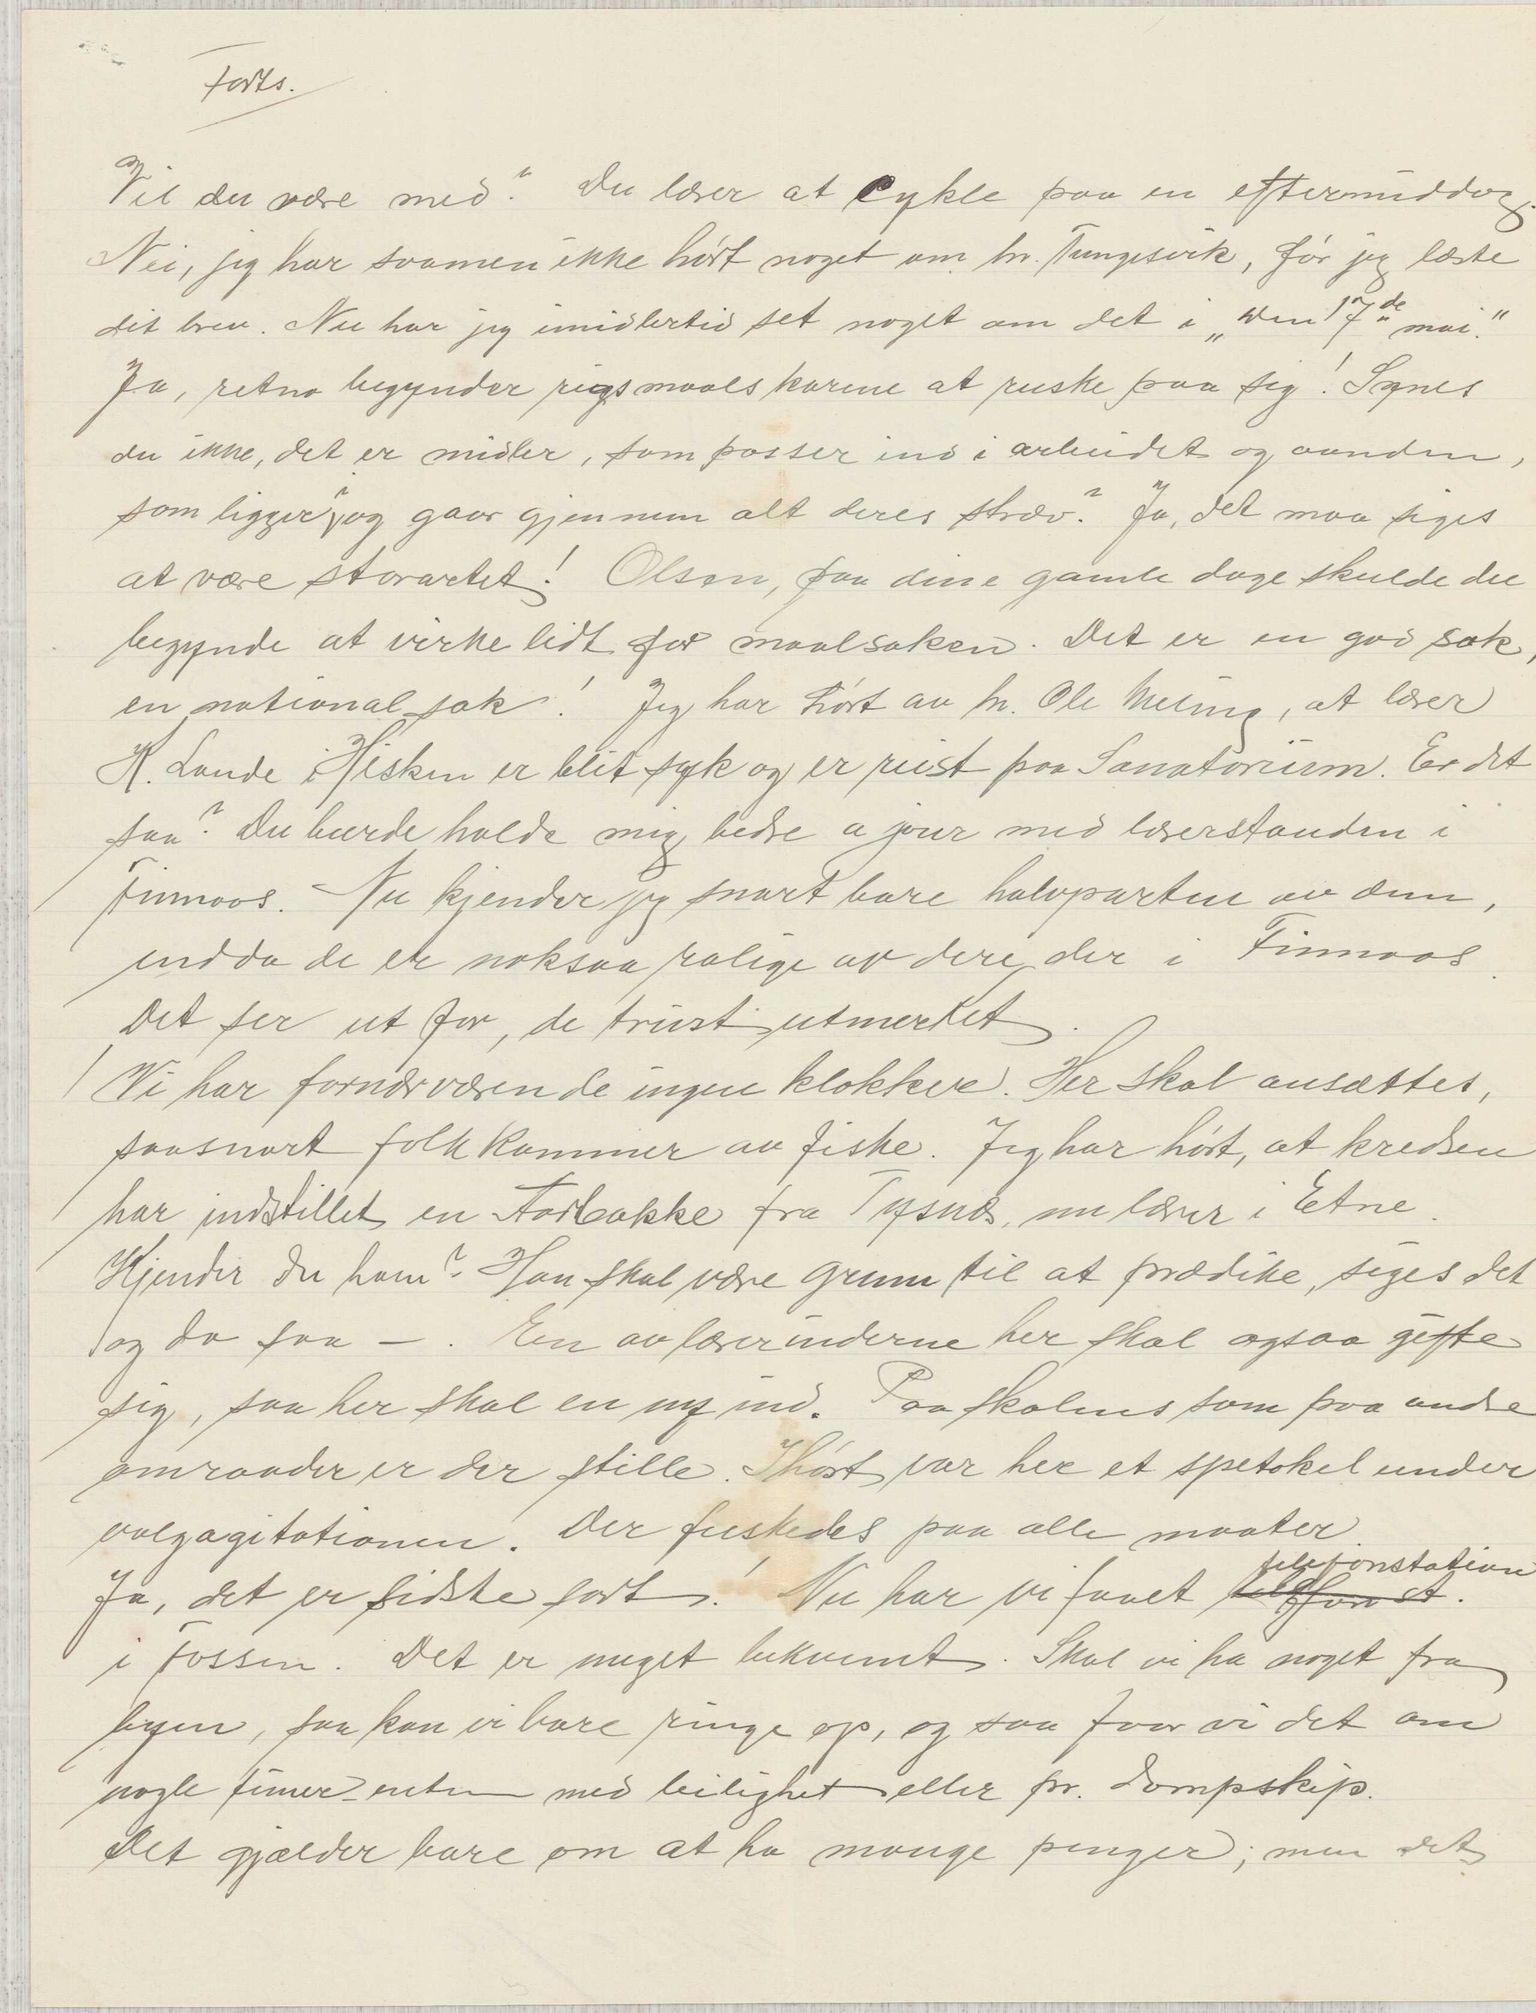 Forts.
Vil du være med? Du lærer at cykle paa en eftermiddag.
Nei, jeg har saamen ikke hørt noget om hr. Tungesvik, før jeg læste
dit brev. Nu har jeg imidlertid set noget om det i „Den 17de mai."
Ja, retno begynder rigsmaalskarene at ruske paa sig! Synes
du ikke, det er midler, som passer ind i arbeidet og aanden,
som ligger i og gaar gjennem alt deres stræv? Ja, det maa siges
at være storartet! Olsen, paa dine gamle dage skulde du
begynde at virke lidt for maalsaken. Det er en god sak,
en national sak! Jeg har hørt av hr. Ole Meling, at lærer
K. Lande i Hisken er blit syk og er reist paa Sanatorium. Er det
saa? Du burde holde mig bedre a jour med lærerstanden i
Finnaas. Nu kjender jeg snart bare halvparten av dem,
endda de er noksaa rolige av dere der i Finnaas.
Det ser ut for, de trives utmerket.
Vi har fornærværende ingen klokker. Her skal ansættes,
saasnart folk kommer av fiske. Jeg har hørt, at kredsen
har indstillet en fra Tysnæs, nu lærer i Etne.
Kjender du ham? Han skal være grum til at prædike, siges det
og da saa – . En av lærerinderne her skal ogsaa gifte
sig, saa her skal en ny ind. Paa skolens som paa andre
omraader er der stille. Ihøst var her et spetakel under
valgagitationen. Der fuskedes paa alle maater.
Ja, det er sidste sort! Nu har vi faaet telefonstation
i Fossen. Det er meget bekvemt. Skal vi ha noget fra
byen, saa kan vi bare ringe op, og saa faar vi det om
nogle timer enten med leilighet eller pr. dampskip.
Det gjælder bare om at ha mange penger; men det